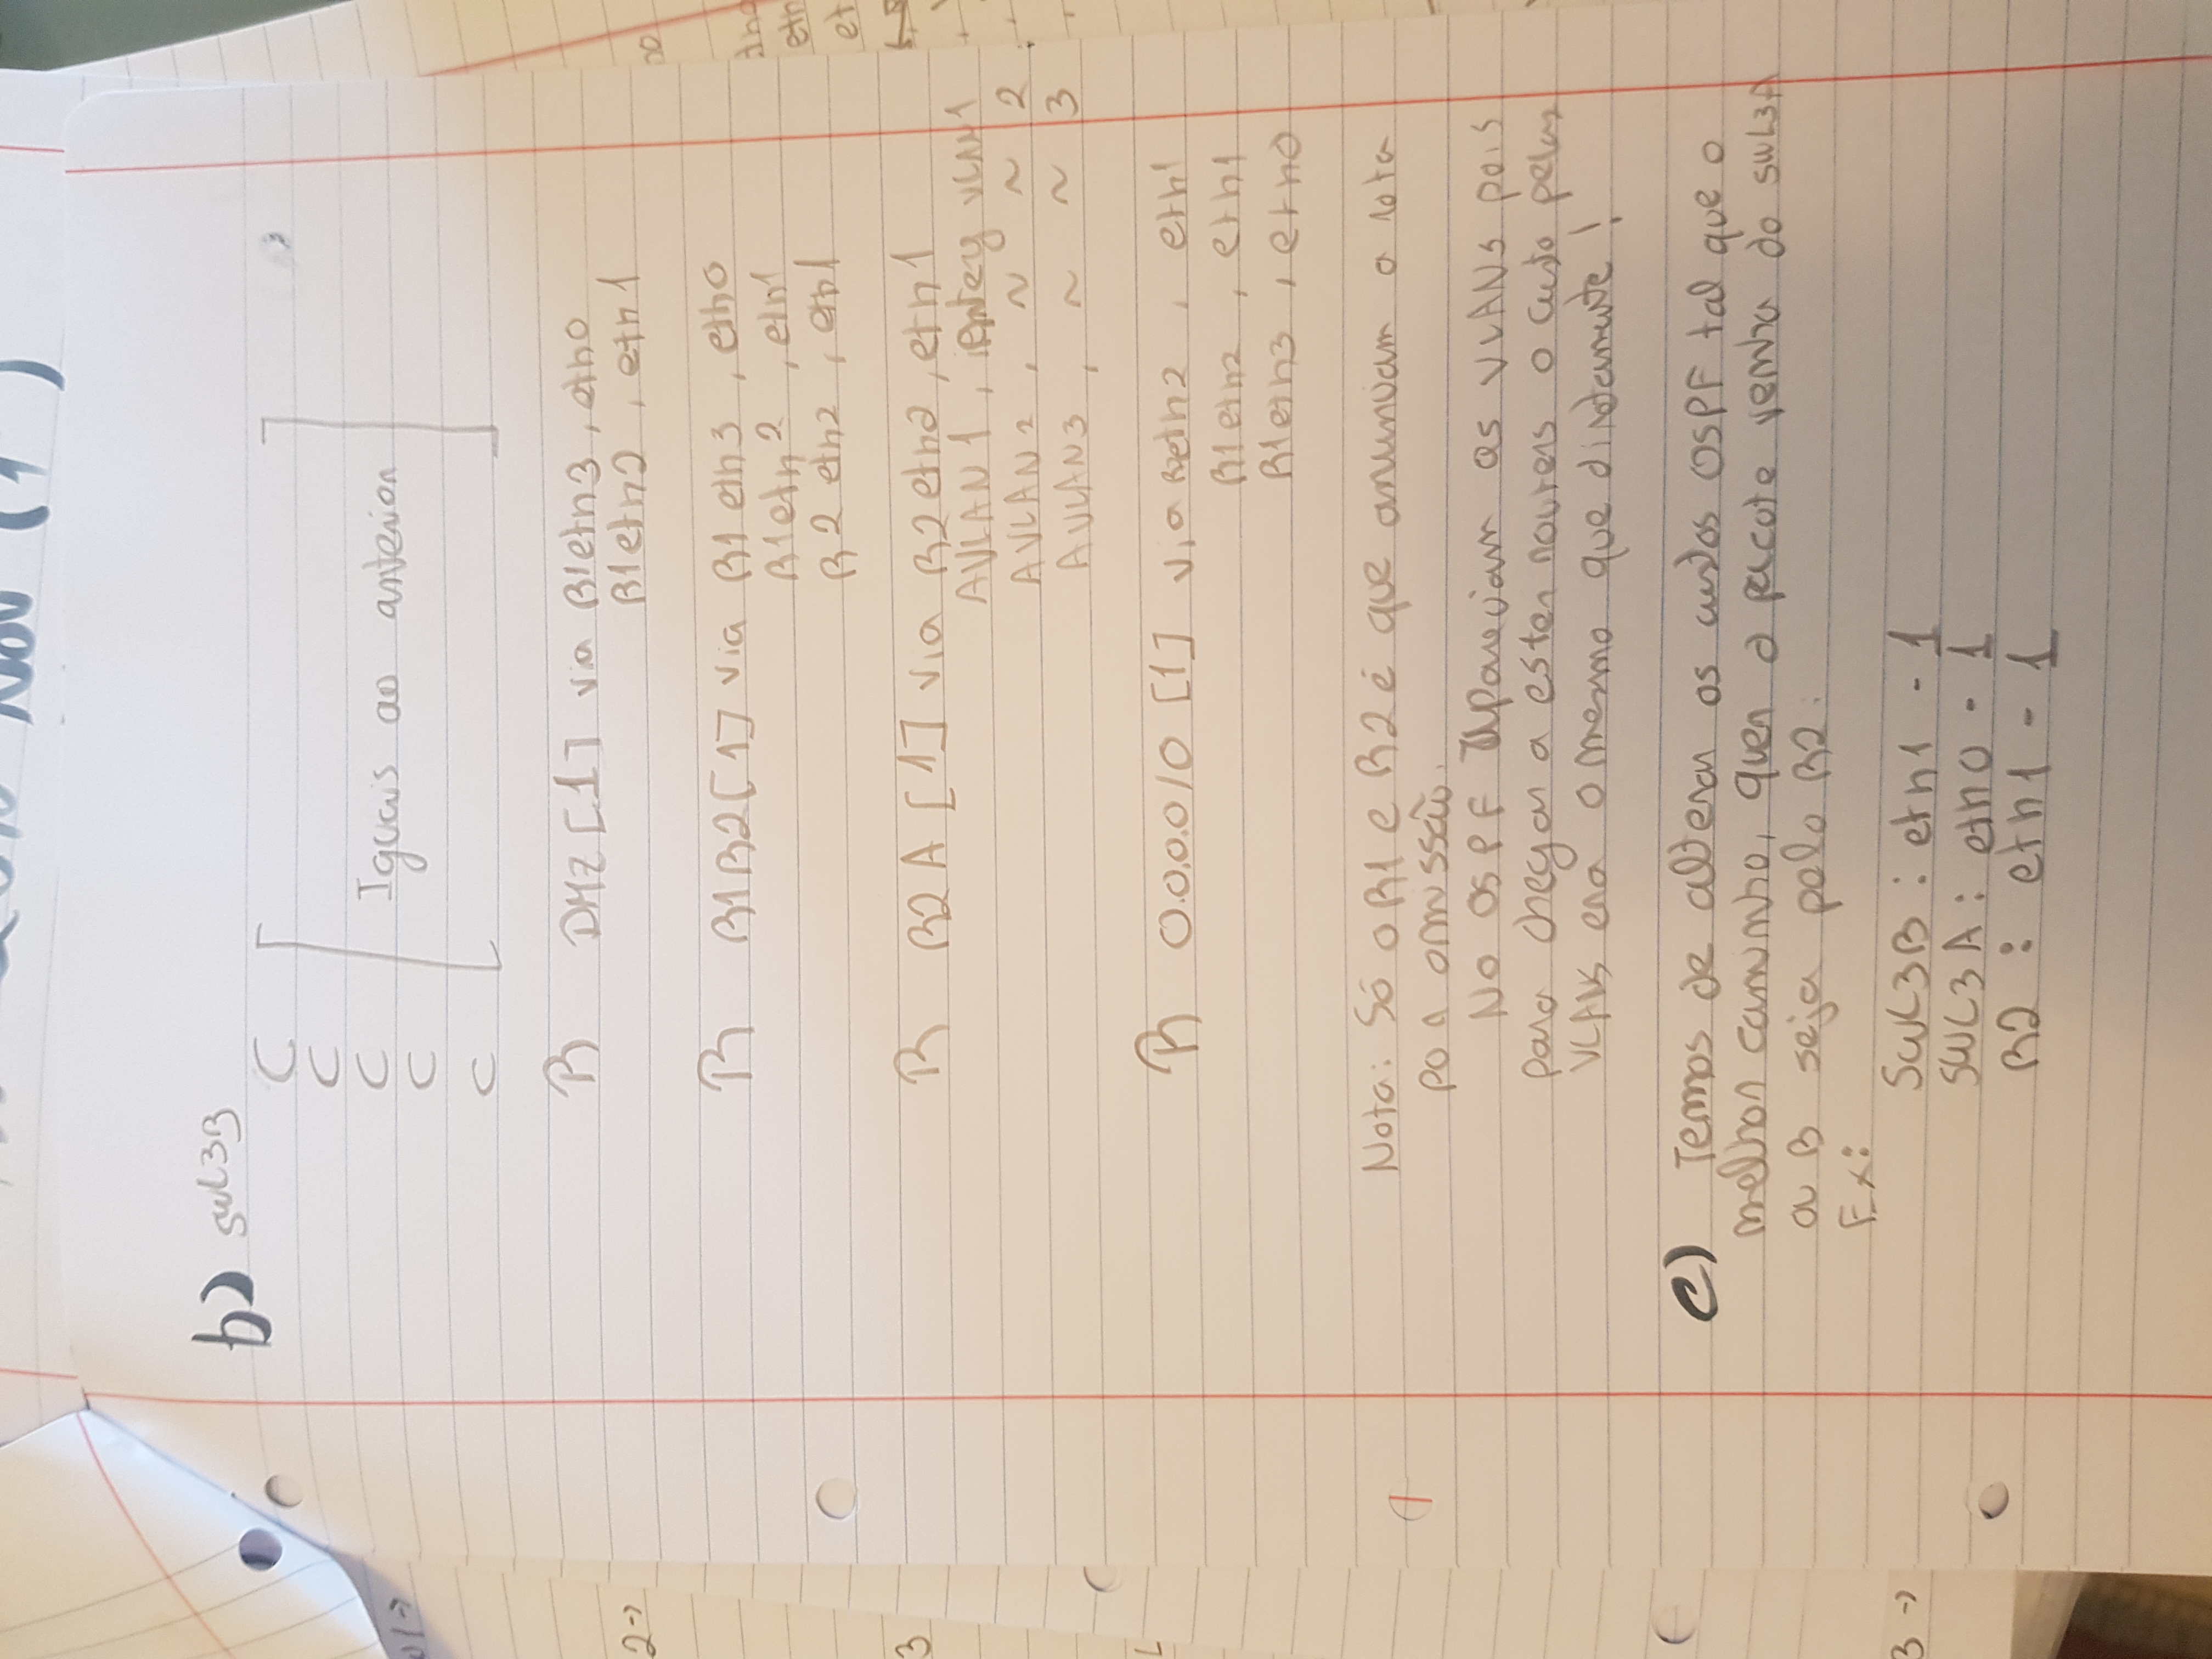 Nov (1)
b) SWL3B
C
C
C Iguais ao anterior
C
C
R DMZ [1] via R1eth3, eth0
R1eth2, eth1
R R1R2 [1] via R1 eth3, eth0
R1eth2, eth1
R2 eth2, eth1
R R2A [1] via R2eth2, eth1
AVLAN1, interf VLAN1
AVLAN2, ~ ~ 2
AVLAN3, ~ ~ 3
R 0.0.0.0/0 [1] via R2eth2, eth1
R1eth2, eth1
R1eth3, eth0
Nota: Só o R1 e R2 é que anunciam a rota
por omissão.
No OSPF apareciam as VLANs pois
para chegar a estes routers o custo pelas
VLANs era o mesmo que diretamente!
c) Temos de alterar os custos OSPF tal que o
melhor caminho, quer o pacote venha do SWL3A
ou B seja pelo R2.
Ex:
SWL3B: eth1 - 1
SWL3A: eth0 - 1
R2: eth1 - 1
01->
2->
3
L
3 ->
eth
et